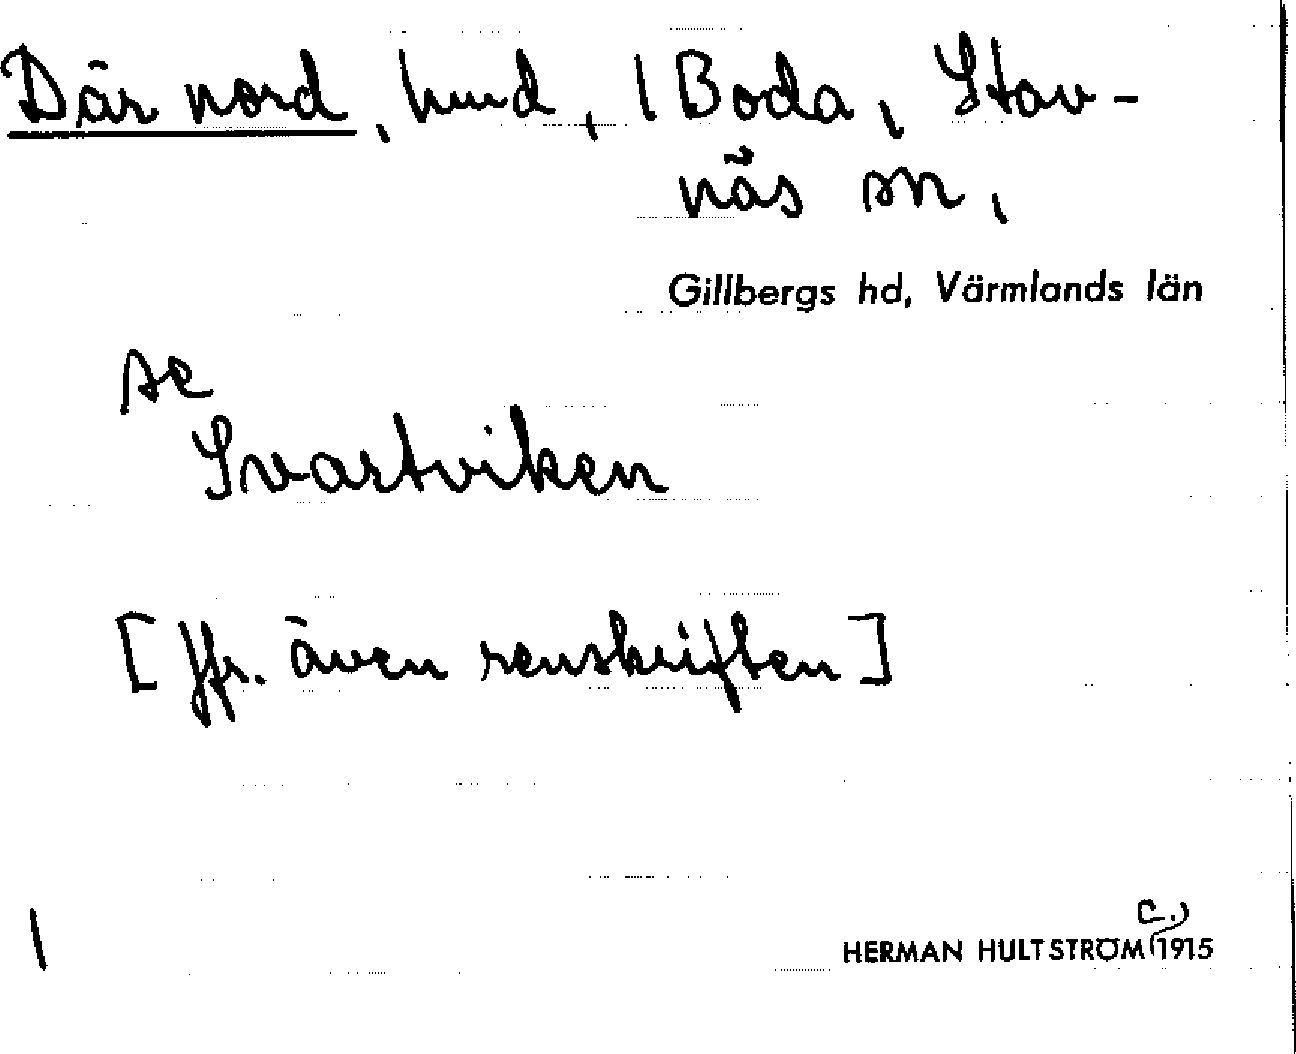 Där nord, hmd, 1 Boda, Stav-
näs sn,
Gillbergs hd, Värmlands län
se
Svartviken
[Jfr. även renskriften]
1
c.
HERMAN HULTSTRÖM 1915